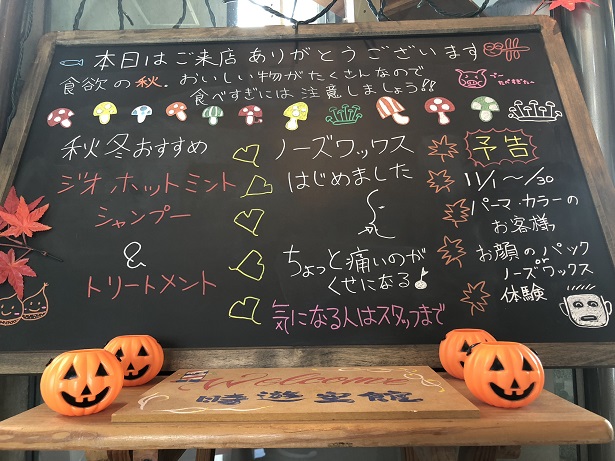 本日はご来店ありがとうございます
食欲の秋。おいしい物がたくさんなので
食べすぎには注意しましょう!!
秋冬おすすめ
ジオ ホットミント
シャンプー
&
トリートメント
ノーズワックス
はじめました
ちょっと痛いのが
くせになる♪
気になる人はスタッフまで
予告
11/1〜/30
パーマ・カラーの
お客様
お顔のパック
or
ノーズワックス
体験
Welcome